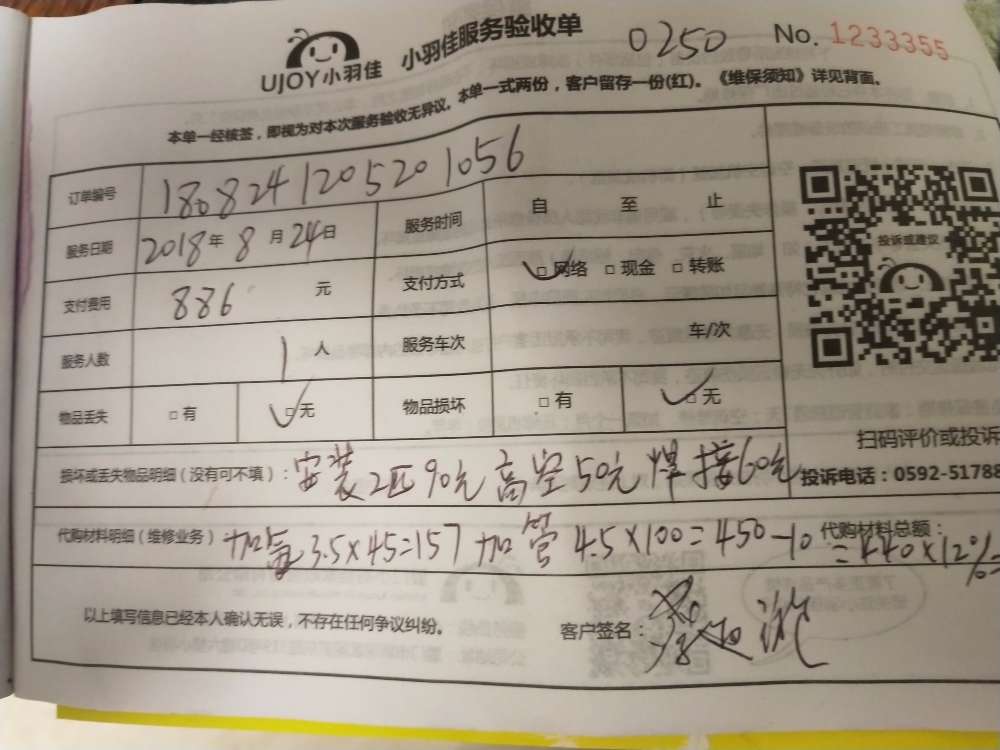 UJOY小羽佳 小羽佳服务验收单 0250 No. 1233355
本单一经核签，即视为对本次服务验收无异议。本单一式两份，客户留存一份(红)。《维保须知》详见背面。
订单编号 1808241205201056
服务日期 2018年 8月 24日 服务时间 自 至 止
支付费用 886 元 支付方式 □网络 □现金 □转账
服务人数 1人 服务车次 车/次
物品丢失 □有 □无 物品损坏 □有 □无
投诉或建议
扫码评价或投诉
投诉电话：0592-51788
损坏或丢失物品明细（没有可不填）：安装2匹90元 高空50元 焊接60元
代购材料明细（维修业务） 加氟3.5×45=157 加管4.5×100=450-10=440×12%=
代购材料总额：
以上填写信息已经本人确认无误，不存在任何争议纠纷。 客户签名：